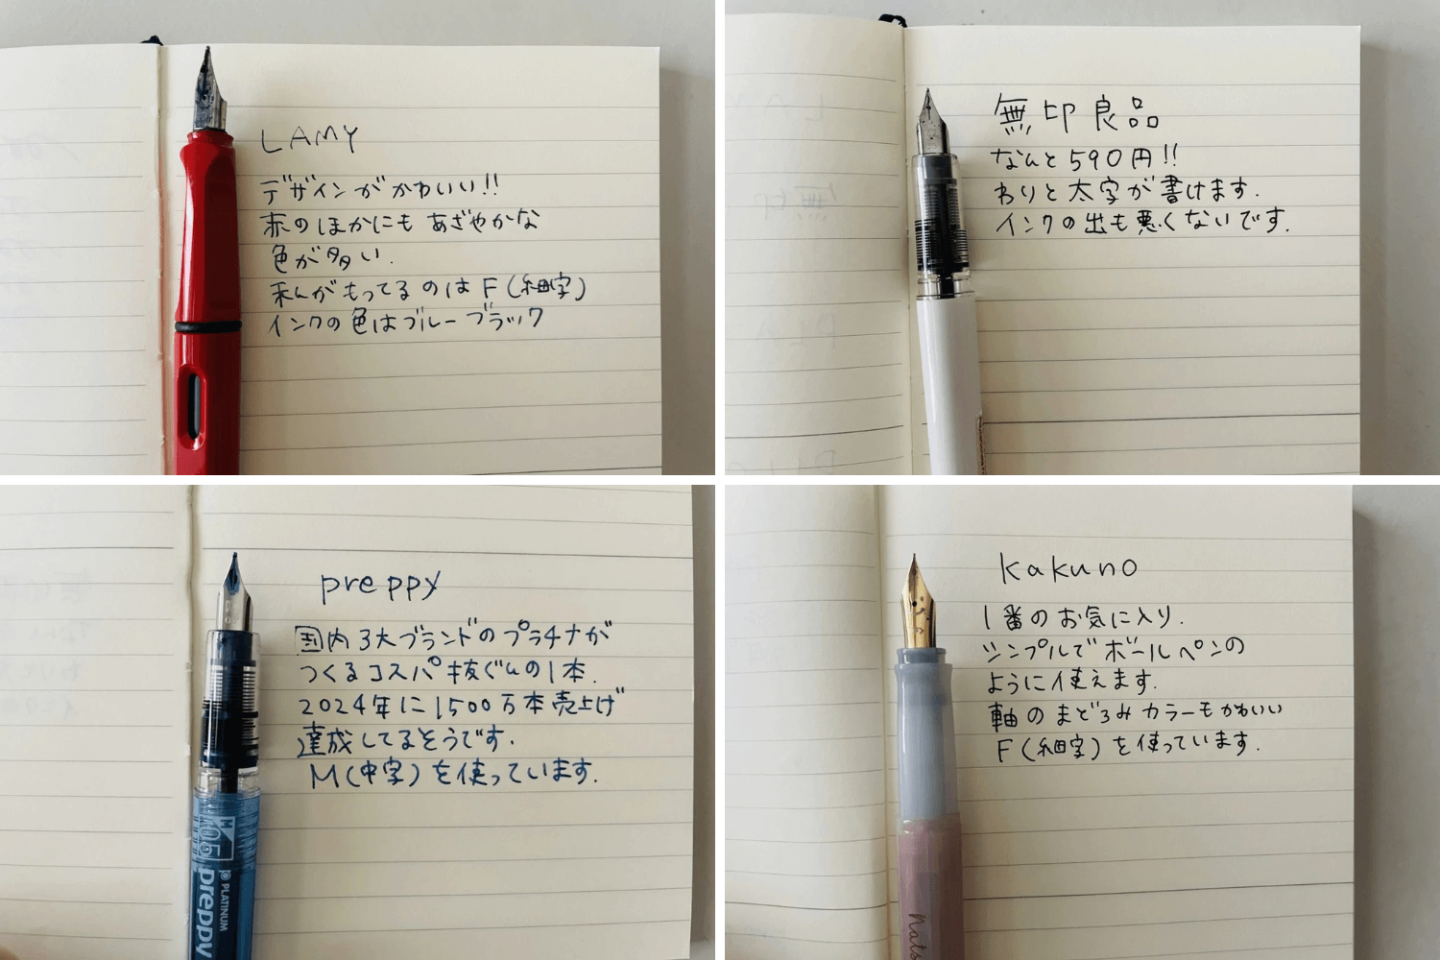 LAMY
デザインがかわいい!!
赤のほかにも あざやかな
色が多い.
私がもってるのは F(細字)
インクの色はブルーブラック
無印良品
なんと590円!!
わりと太字が書けます.
インクの出も悪くないです.
preppy
国内3大ブランドのプラチナが
つくるコスパ抜ぐんの1本.
2024年に1500万本売上げ
達成してるそうです.
M(中字)を使っています.
PLATINUM
preppy
kakuno
1番のお気に入り.
シンプルで ボールペンの
ように使えます.
軸の まどろみカラーもかわいい
F(細字)を使っています.